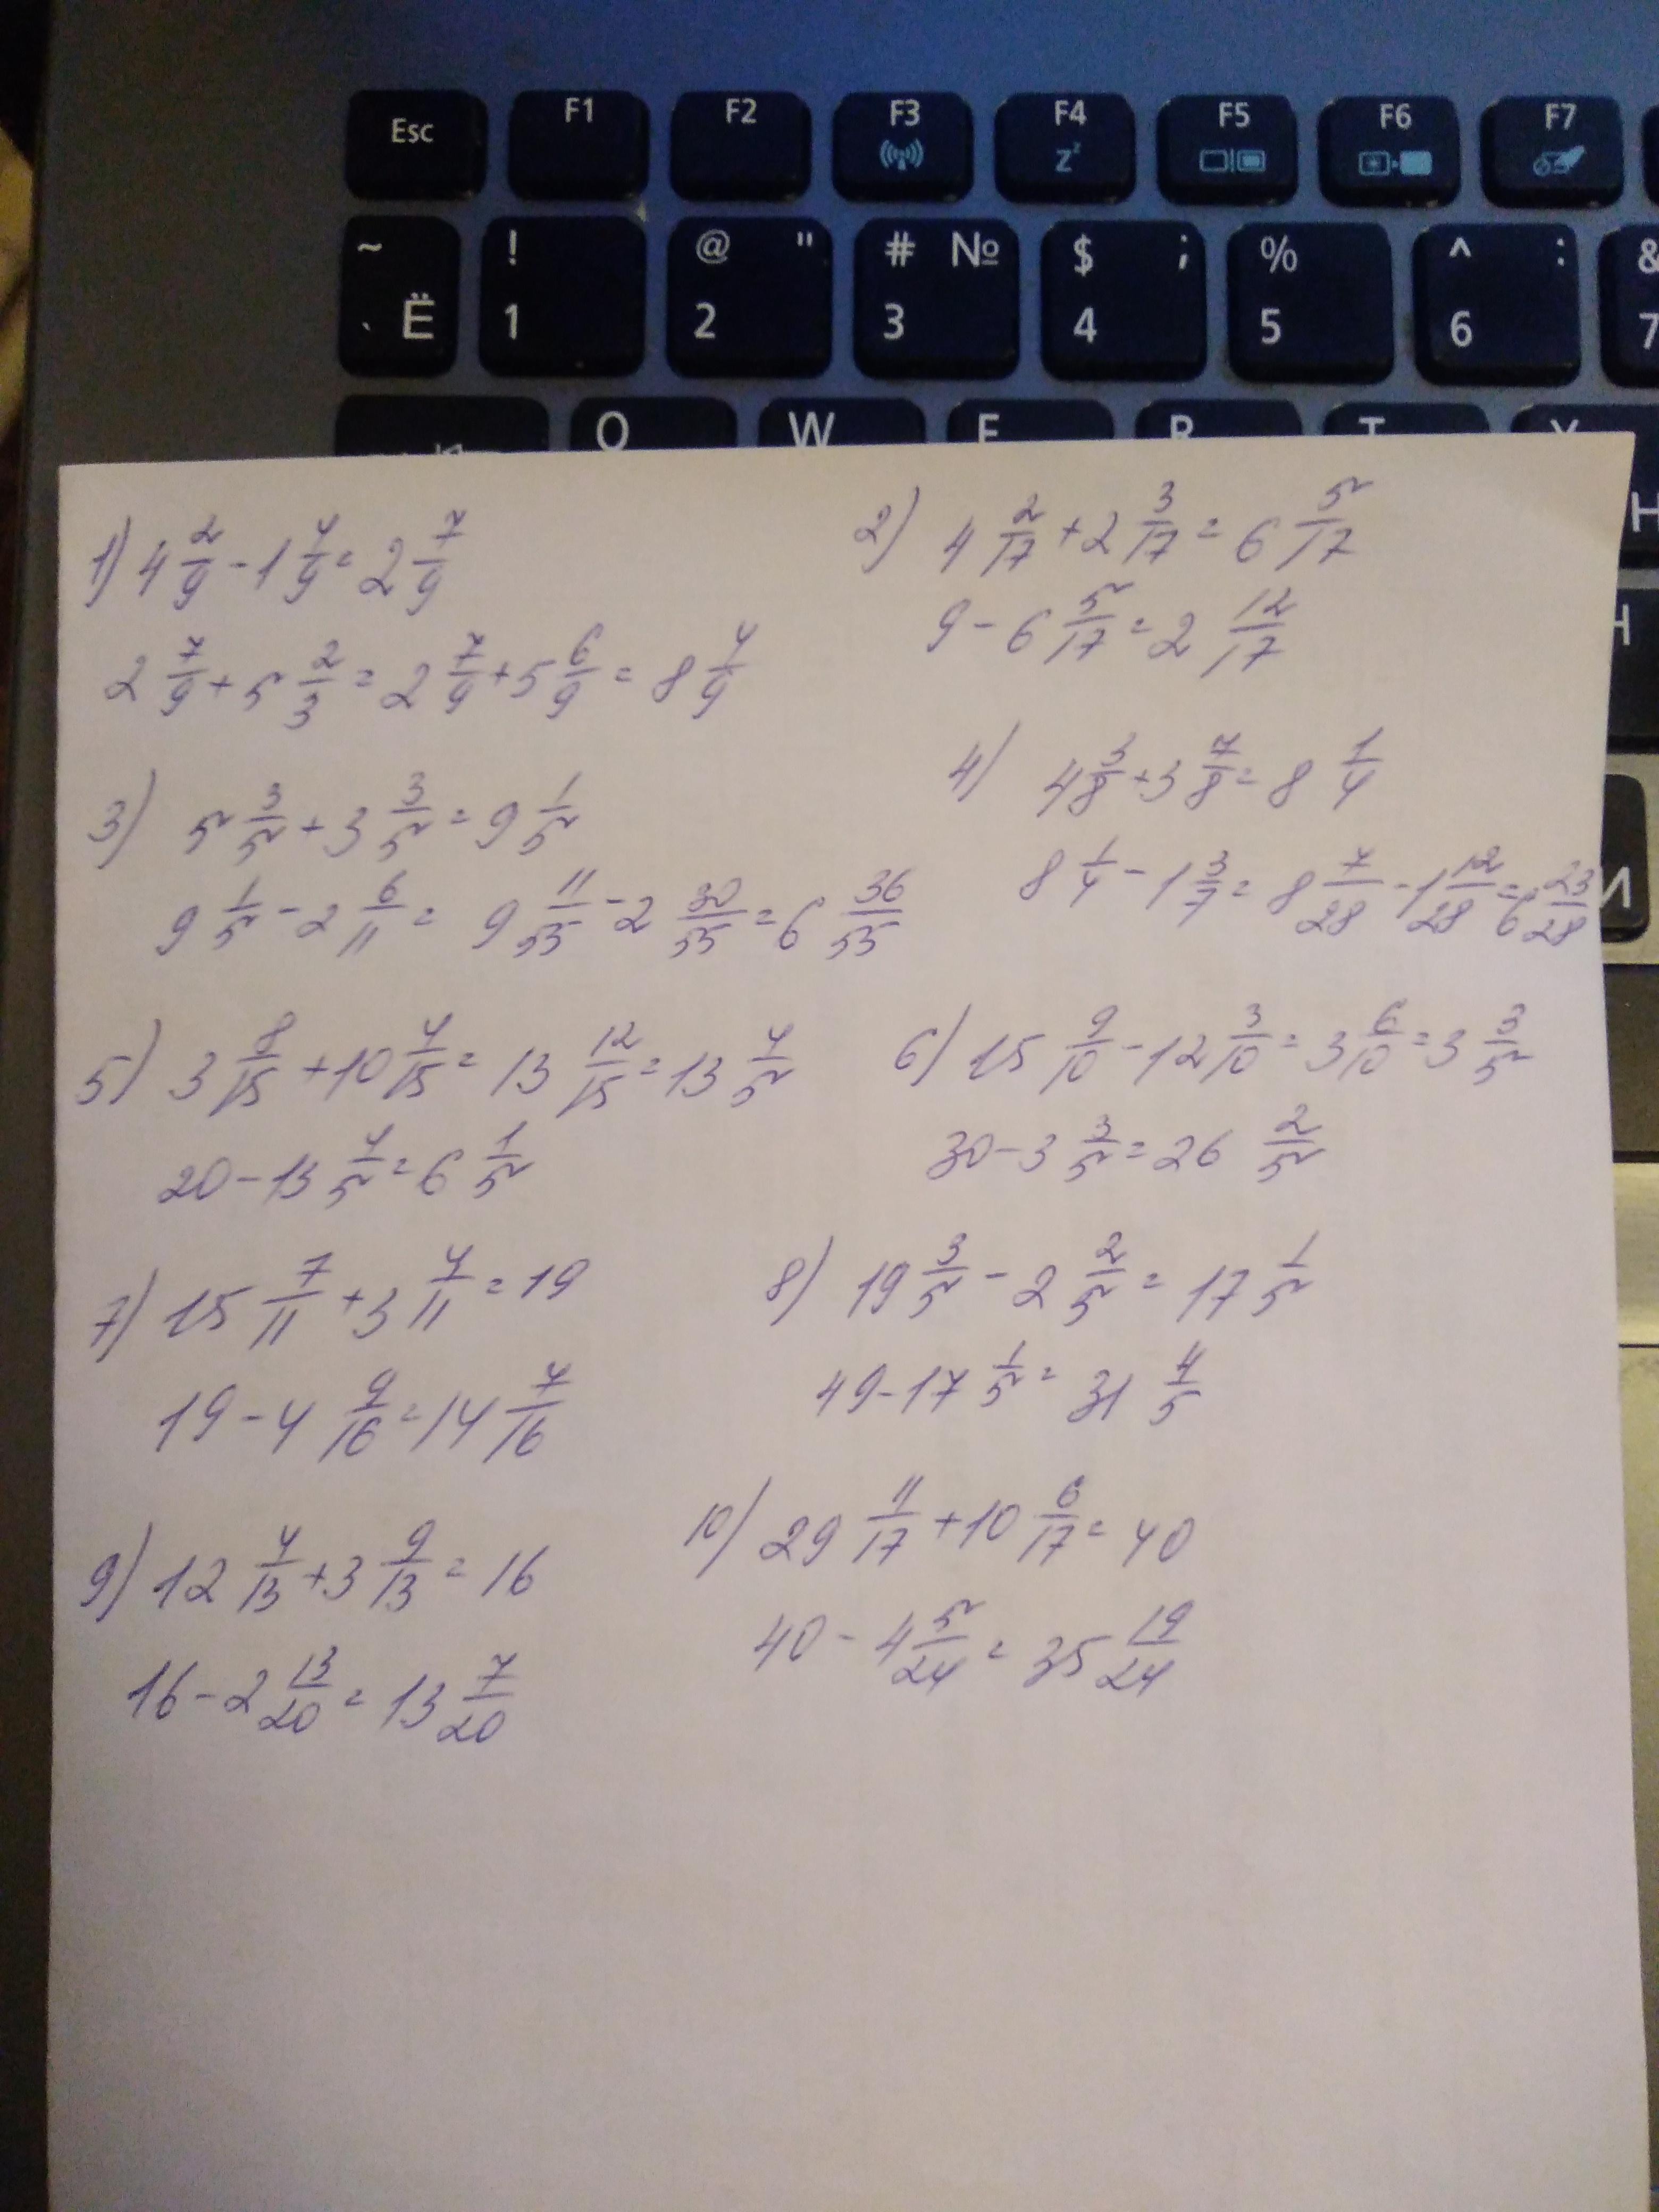 Esc F1 F2 F3 F4 Z F5 F6 F7
~ ! @ " # № $ ; % ^ : &
` Ё 1 2 3 4 5 6 7
Q W E R T Y
1) 4 2/9 - 1 4/9 = 2 7/9
2 7/9 + 5 2/3 = 2 7/9 + 5 6/9 = 8 4/9
2) 4 2/17 + 2 3/17 = 6 5/17
9 - 6 5/17 = 2 12/17
3) 5 3/5 + 3 3/5 = 9 1/5
9 1/5 - 2 6/11 = 9 11/55 - 2 30/55 = 6 36/55
4) 4 3/8 + 3 7/8 = 8 1/4
8 1/4 - 1 3/7 = 8 7/28 - 1 12/28 = 6 23/28
5) 3 8/15 + 10 4/15 = 13 12/15 = 13 4/5
20 - 13 4/5 = 6 1/5
6) 15 9/10 - 12 3/10 = 3 6/10 = 3 3/5
30 - 3 3/5 = 26 2/5
7) 15 7/11 + 3 4/11 = 19
19 - 4 9/16 = 14 7/16
8) 19 3/5 - 2 2/5 = 17 1/5
49 - 17 1/5 = 31 4/5
9) 12 4/13 + 3 9/13 = 16
16 - 2 13/20 = 13 7/20
10) 29 11/17 + 10 6/17 = 40
40 - 4 5/24 = 35 19/24